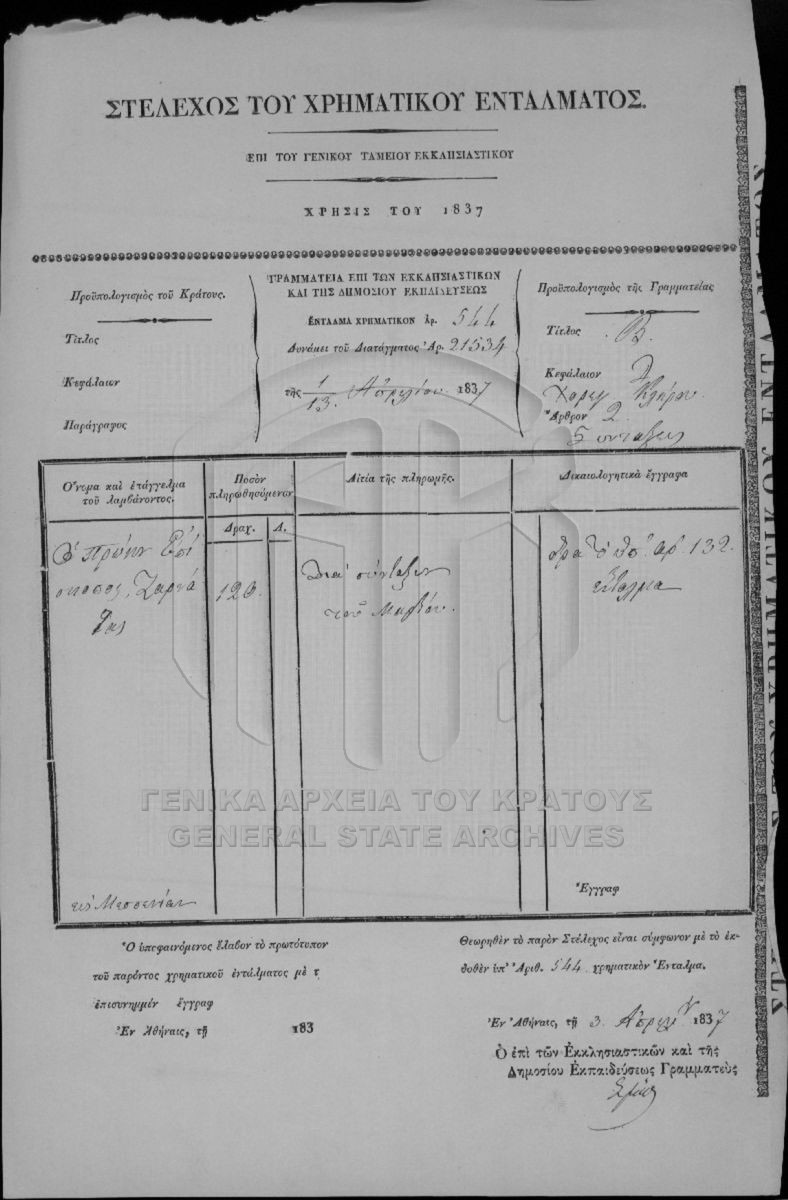 ΣΤΕΛΕΧΟΣ ΤΟΥ ΧΡΗΜΑΤΙΚΟΥ ΕΝΤΑΛΜΑΤΟΣ.
ΕΠΙ ΤΟΥ ΓΕΝΙΚΟΥ ΤΑΜΕΙΟΥ ΕΚΚΛΗΣΙΑΣΤΙΚΟΥ
ΧΡΗΣΙΣ ΤΟΥ 1837
Προϋπολογισμὸς τοῦ Κράτους.
Τίτλος
Κεφάλαιων
Παράγραφος
ΓΡΑΜΜΑΤΕΙΑ ΕΠΙ ΤΩΝ ΕΚΚΛΗΣΙΑΣΤΙΚΩΝ
ΚΑΙ ΤΗΣ ΔΗΜΟΣΙΟΥ ΕΚΠΑΙΔΕΥΣΕΩΣ
ΕΝΤΑΛΜΑ ΧΡΗΜΑΤΙΚΟΝ Ἀρ. 544
Δυνάμει τοῦ Διατάγματος Ἀρ. 21534
τῆς 1/13. Ἀπριλίου 1837
Προϋπολογισμὸς τῆς Γραμματείας
Τίτλος Β.
Κεφάλαιον
Χορηγ. Κλήρου.
Ἄρθρον 2.
Συντάξεις
Ὄνομα καὶ ἐπάγγελμα
τοῦ λαμβάνοντος.
Ποσὸν
πληρωθησόμενον
Δραχ. Λ.
Αἰτία τῆς πληρωμῆς.
Δικαιολογητικὰ ἔγγραφα
Ὁ πρώην Ἐπί
σκοπος Ζαρνά
τας
120.
Διὰ σύνταξιν
τοῦ Μαρτίου.
ὅρα τὸ ὑπ' ἀρ. 132.
ἔνταλμα
εἰς Μεσσηνίαν
Ἔγγραφ
Ὁ ὑπεφαινόμενος ἔλαβον τὸ πρωτότυπον
τοῦ παρόντος χρηματικοῦ ἐντάλματος μὲ τ
ἐπισυνημμέν ἔγγραφ
Ἐν Ἀθήναις, τῇ 183
Θεωρηθὲν τὸ παρὸν Στέλεχος εἶναι σύμφωνον μὲ τὸ ἐκ-
δοθὲν ὑπ' Ἀριθ. 544 χρηματικὸν Ἔνταλμα.
Ἐν Ἀθήναις, τῇ 3. Ἀπριλίου 1837
Ὁ ἐπὶ τῶν Ἐκκλησιαστικῶν καὶ τῆς
Δημοσίου Ἐκπαιδεύσεως Γραμματεὺς
ΓΕΝΙΚΑ ΑΡΧΕΙΑ ΤΟΥ ΚΡΑΤΟΥΣ
GENERAL STATE ARCHIVES